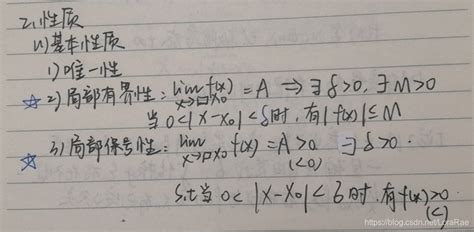 2.性质
(1)基本性质
1)唯一性
☆ 2) 局部有界性: lim f(x) = A ⇒ ∃ δ>0, ∃ M>0
x→□x₀
当 0<|x-x₀|<δ时, 有|f(x)|≤M
☆ 3) 局部保号性: lim f(x)=A>0 ∃ δ>0.
x→□x₀ (<0)
s.t当 0< |x-x₀|<δ时, 有f(x)>0
(<)
https://blog.csdn.net/LoraRae